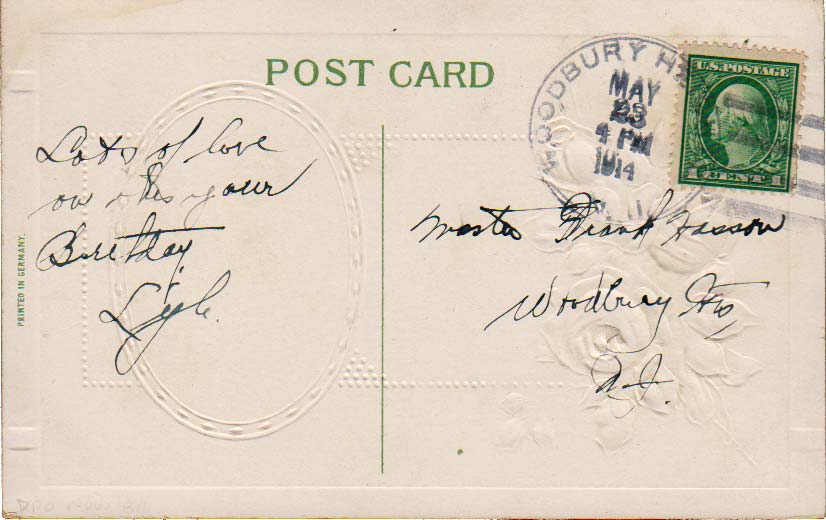 POST CARD
WOODBURY H
MAY
23
4 PM
1914
U.S. POSTAGE
1 CENT 1
Lots of love
on this your
Birthday
Lyle.
Master Frank Hasson
Woodbury Hts,
N.J.
PRINTED IN GERMANY.